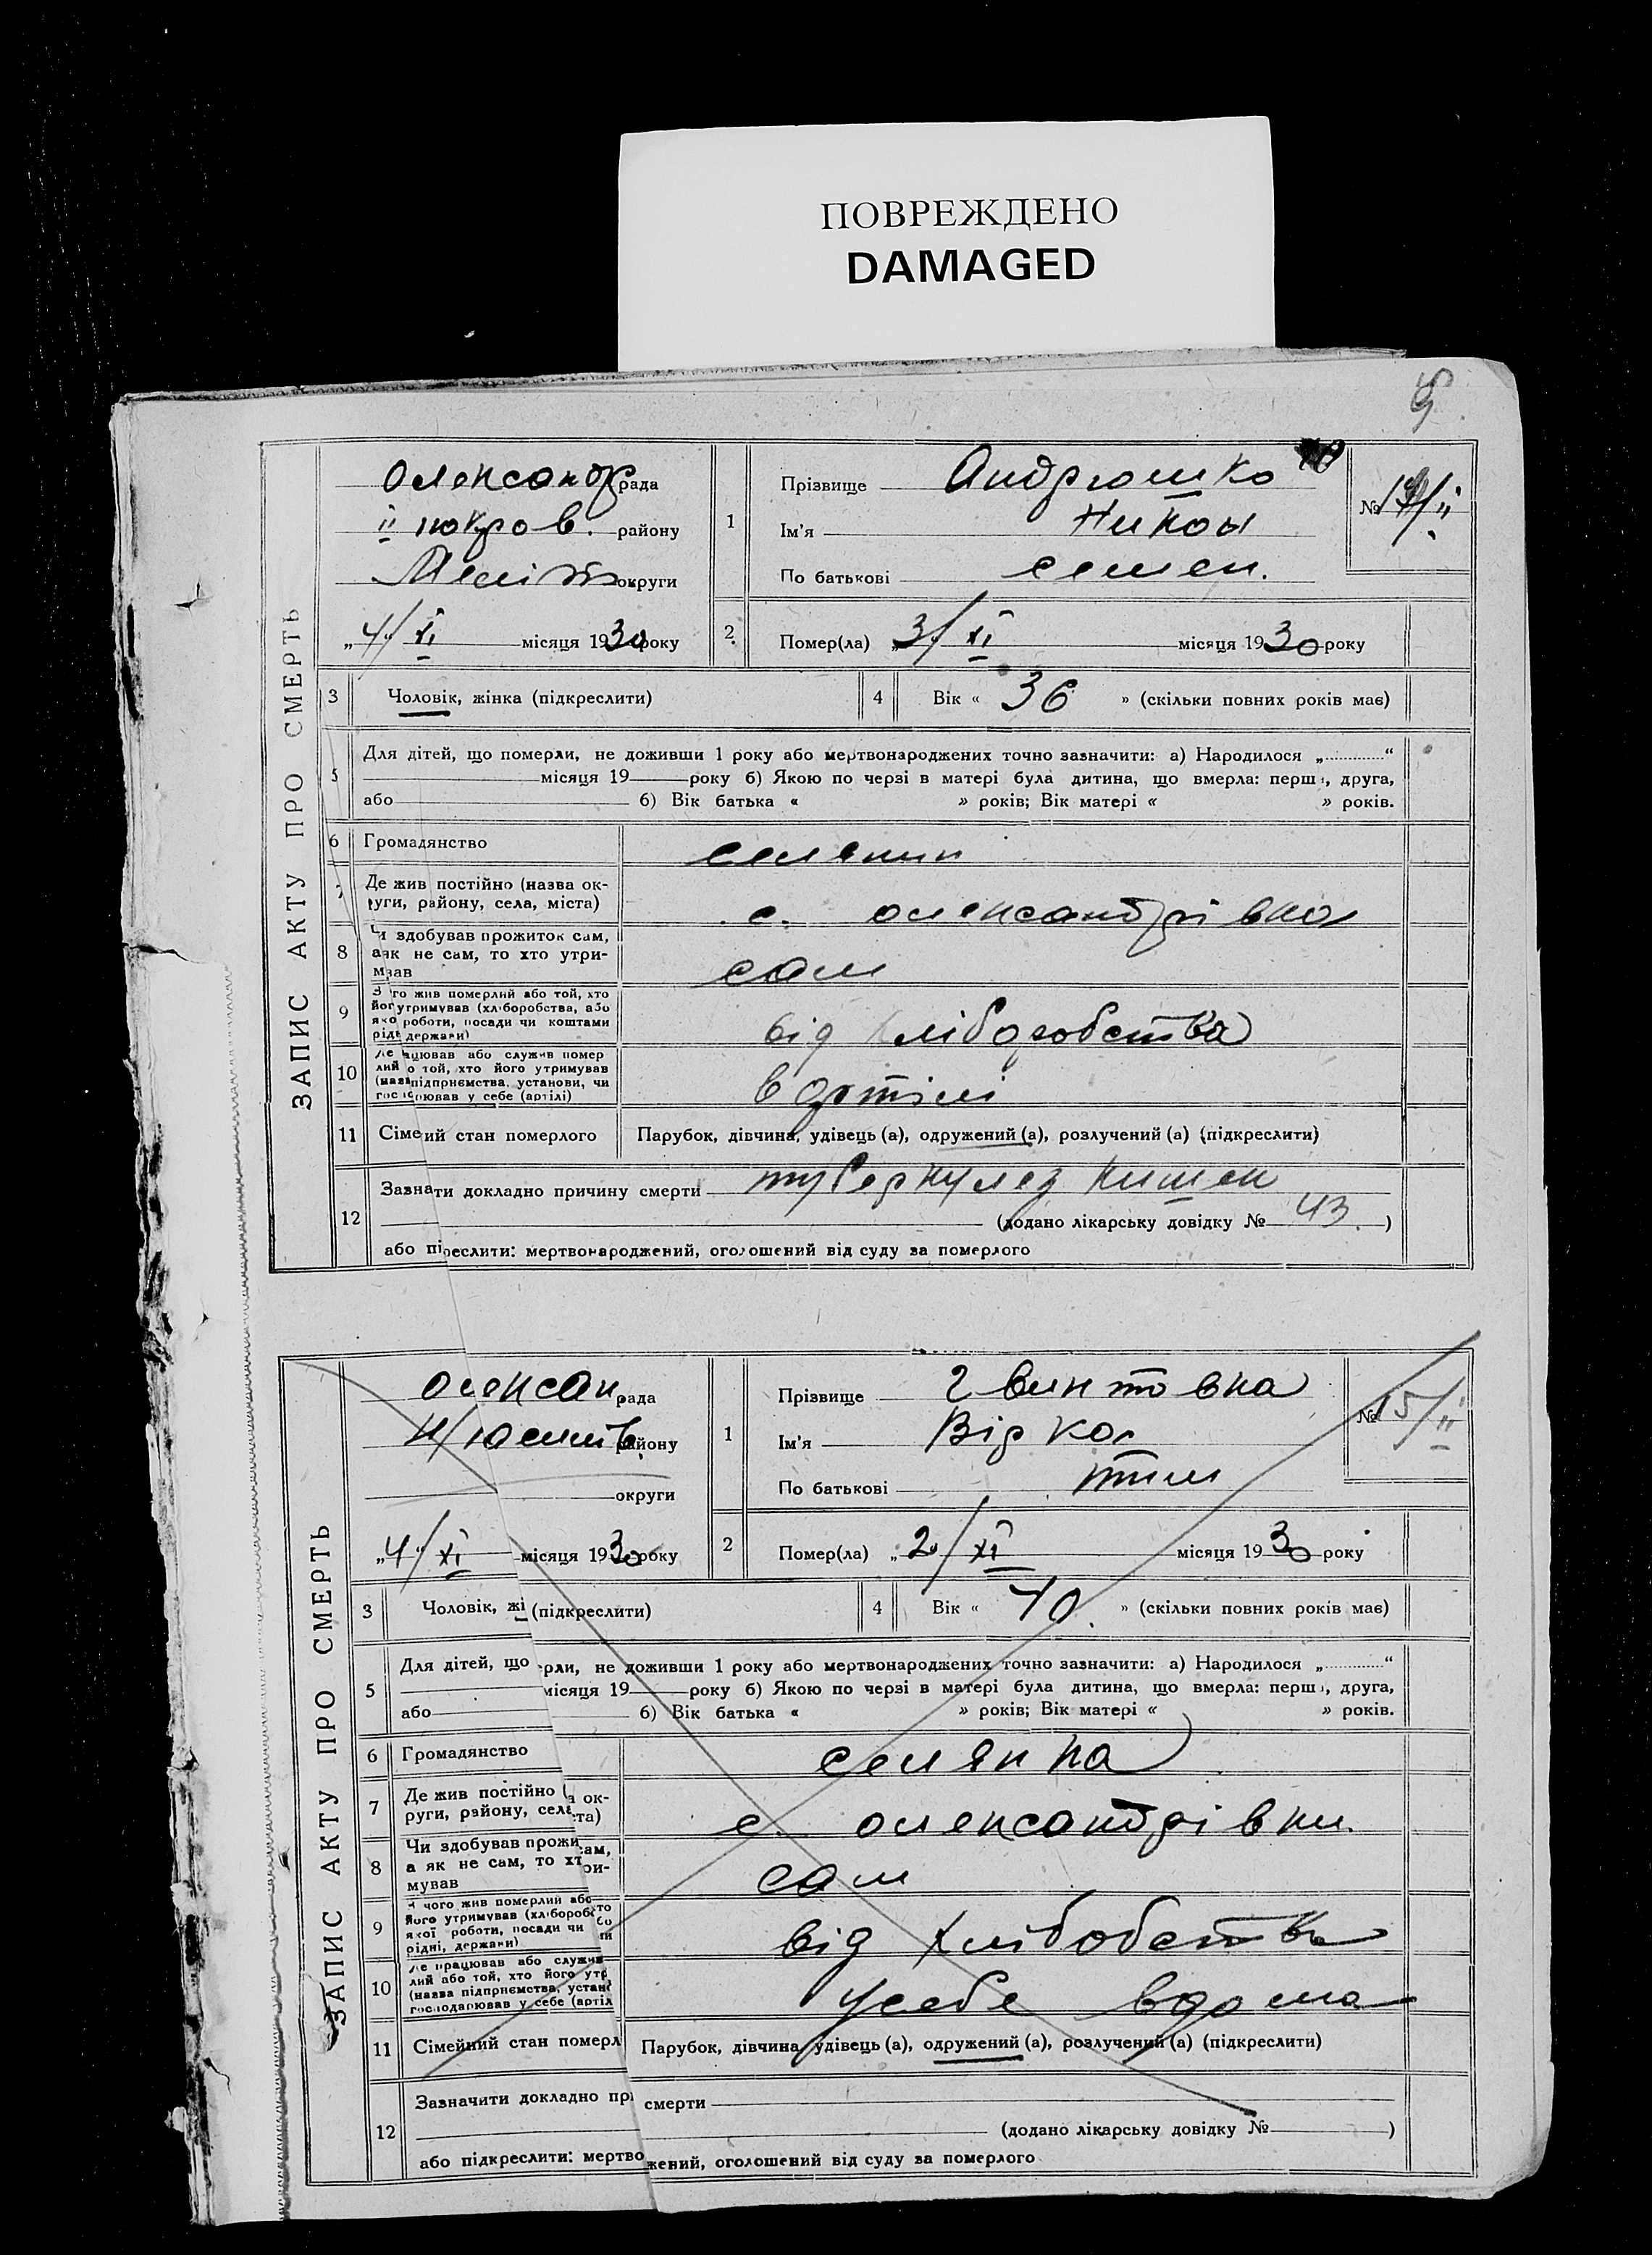 ПОВРЕЖДЕНО
DAMAGED
9
ЗАПИС АКТУ ПРО СМЕРТЬ
Олександр рада
району
округи
„4/XI місяця 1930 року
1
Прізвище Андрюшко
Ім'я
По батькові Семен.
№
2
Помер(ла) „3/XI місяця 1930 року
3 Чоловік, жінка (підкреслити)
4 Вік « 36 » (скільки повних років має)
5 Для дітей, що померли, не доживши 1 року або мертвонароджених точно зазначити: а) Народилося „............“
місяця 19 року б) Якою по черзі в матері була дитина, що вмерла: перша, друга,
або б) Вік батька « » років; Вік матері « » років.
6 Громадянство селянин
7 Де жив постійно (назва ок-
руги, району, села, міста) с. Олександрівка
8 Чи здобував прожиток сам,
а як не сам, то хто утри-
мував сам
9 З чого жив померлий або той, хто
його утримував (хліборобства, або
якої роботи, посади чи коштами
рідні, держави) від хліборобства
10 Де працював або служив помер
лий або той, хто його утримував
(назва підприємства, установи, чи
господарював у себе (артілі) в артілі
11 Сімейний стан померлого Парубок, дівчина, удівець (а), одружений (а), розлучений (а) (підкреслити)
12 Зазнати докладно причину смерти туберкулез кишек
(додано лікарську довідку № 43. )
або підкреслити: мертвонароджений, оголошений від суду за померлого
ЗАПИС АКТУ ПРО СМЕРТЬ
Олексан рада
району
округи
„4/XI місяця 1930 року
1
Прізвище Гвинтовка
Ім'я
По батькові
№ 15/II
2
Помер(ла) „2/XI місяця 1930 року
3 Чоловік, жі (підкреслити)
4 Вік « 40 » (скільки повних років має)
5 Для дітей, що ерли, не доживши 1 року або мертвонароджених точно зазначити: а) Народилося „............“
місяця 19 року б) Якою по черзі в матері була дитина, що вмерла: перша, друга,
або б) Вік батька « » років; Вік матері « » років.
6 Громадянство селянка
7 Де жив постійно ( а ок-
руги, району, села ста) с. Олександрівки.
8 Чи здобував прожи сам,
а як не сам, то хт ри-
мував сам
9 З чого жив померлий або то
його утримував (хлібороб бо
якої роботи, посади чи ми
рідні, держави) від хлібобства
10 Де працював або служив
лий або той, хто його утр
(назва підприємства, устан
господарював у себе (артіл у себе вдома
11 Сімейний стан померл Парубок, дівчина, удівець (а), одружений (а), розлучений (а) (підкреслити)
12 Зазначити докладно при смерти
(додано лікарську довідку № )
або підкреслити: мертво жений, оголошений від суду за померлого